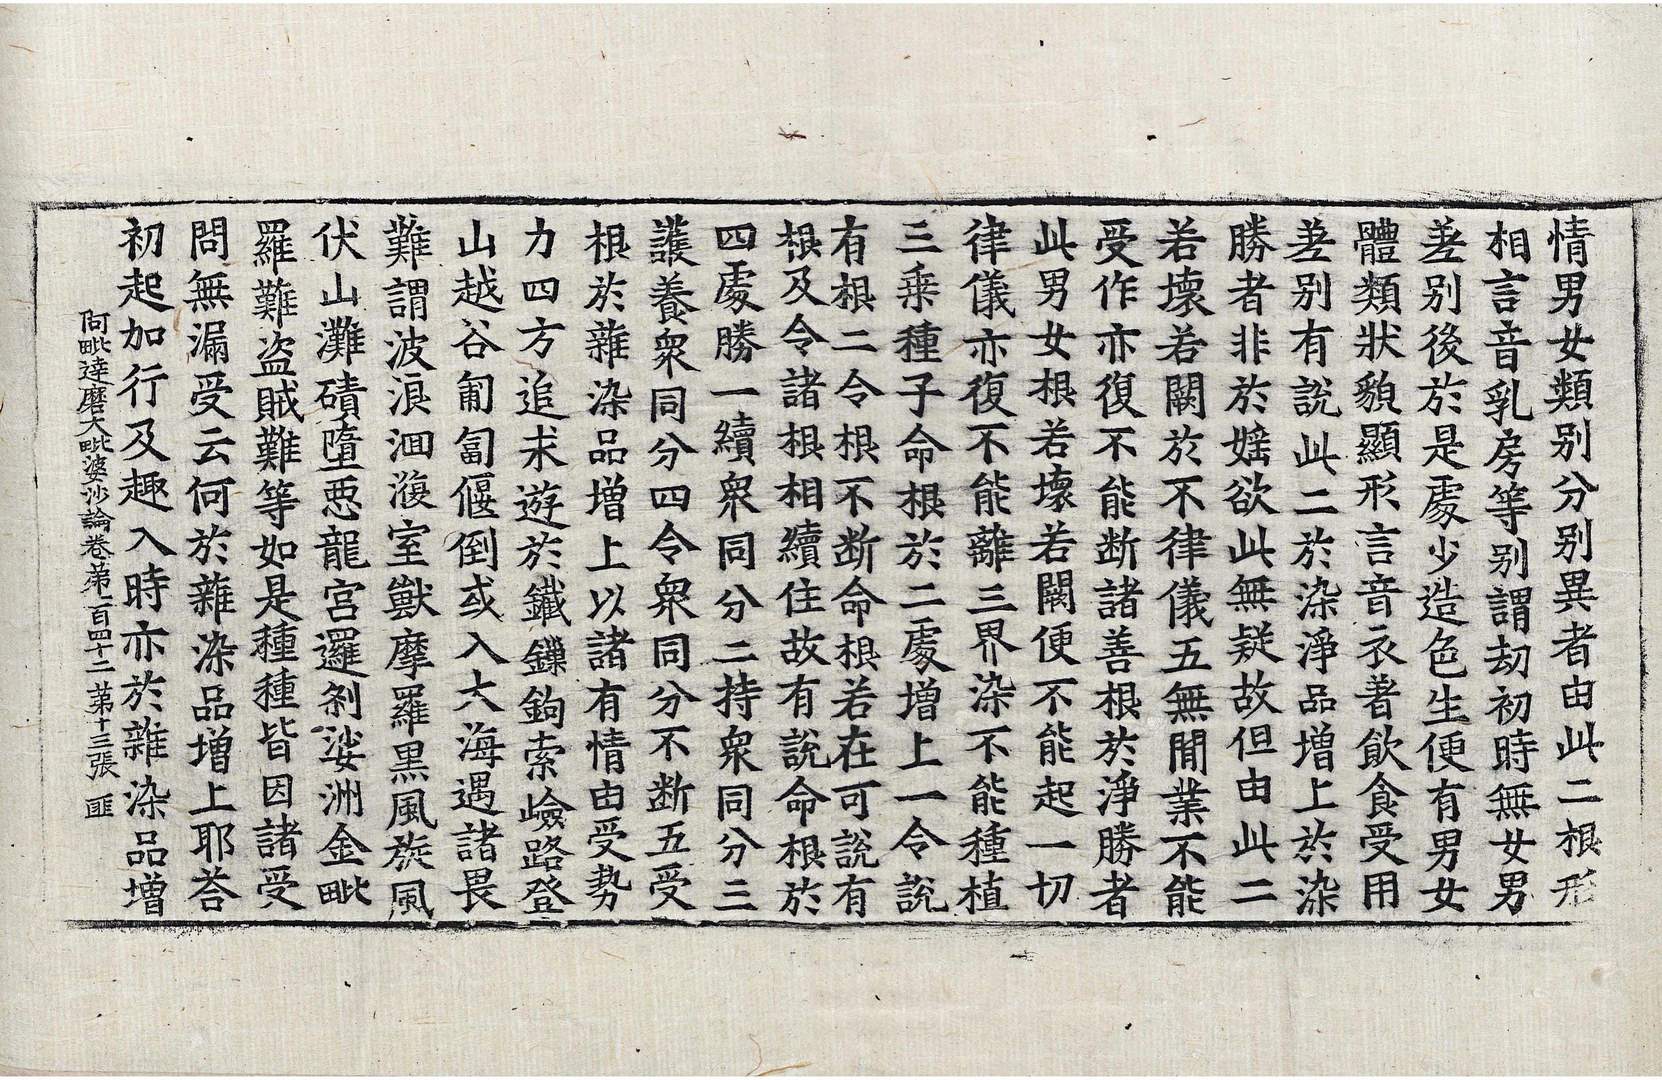 情男女類別分別異者由此二根形
相言音乳房等別謂劫初時無女男
差別後於是處少造色生便有男女
體類狀貌顯形言音衣著飲食受用
差別有說此二於染淨品增上於染
勝者非於婬欲此無疑故但由此二
若壞若闕於不律儀五無間業不能
受作亦復不能斷諸善根於淨勝者
此男女根若壞若闕便不能起一切
律儀亦復不能離三界染不能種植
三乘種子命根於二處增上一令說
有根二令根不断命根若在可說有
根及令諸根相續住故有說命根於
四處勝一續衆同分二持衆同分三
護養衆同分四令衆同分不断五受
根於雜染品增上以諸有情由受勢
力四方追求遊於鐵鏁鉤索嶮路登
山越谷匍匐偃倒或入大海遇諸畏
難謂波浪洄澓室獸摩羅黑風旋風
伏山灘磧墮惡龍宮邏剎娑洲金毗
羅難盜賊難等如是種種皆因諸受
問無漏受云何於雜染品增上耶荅
初起加行及趣入時亦於雜染品增
阿毗達磨大毗婆沙論卷第一百四十二 第十三張 匪